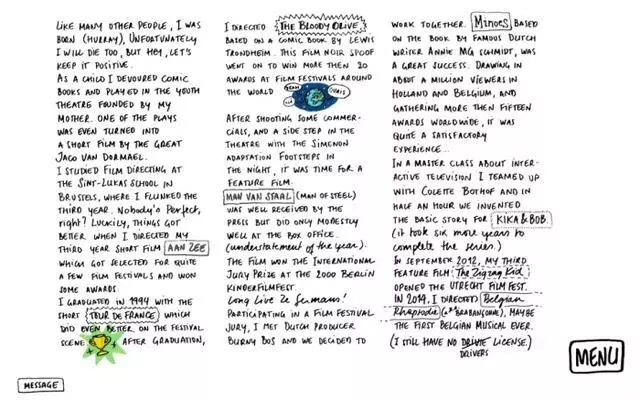 LIKE MANY OTHER PEOPLE, I WAS
BORN (HURRAY), UNFORTUNATELY
I WILL DIE TOO, BUT HEY, LET'S
KEEP IT POSITIVE.
AS A CHILD I DEVOURED COMIC
BOOKS AND PLAYED IN THE YOUTH
THEATRE FOUNDED BY MY
MOTHER. ONE OF THE PLAYS
WAS EVEN TURNED INTO
A SHORT FILM BY THE GREAT
JACO VAN DORMAEL.
I STUDIED FILM DIRECTING AT
THE SINT-LUKAS SCHOOL IN
BRUSSELS, WHERE I FLUNKED THE
THIRD YEAR. Nobody's Perfect,
right? LUCKILY, THINGS GOT
BETTER WHEN I DIRECTED MY
THIRD YEAR SHORT FILM AAN ZEE
WHICH GOT SELECTED FOR QUITE
A FEW FILM FESTIVALS AND WON
SOME AWARDS.
I GRADUATED IN 1994 WITH THE
SHORT TOUR DE FRANCE WHICH
DID EVEN BETTER ON THE FESTIVAL
SCENE. AFTER GRADUATION,
I DIRECTED THE BLOODY OLIVE,
BASED ON A COMIC BOOK BY LEWIS
TRONDHEIM. THIS FILM NOIR SPOOF
WENT ON TO WIN MORE THEN 20
AWARDS AT FILM FESTIVALS AROUND
THE WORLD
AFTER SHOOTING SOME COMMER-
CIALS, AND A SIDE STEP IN THE
THEATRE WITH THE SIMENON
ADAPTATION FOOTSTEPS IN
THE NIGHT, IT WAS TIME FOR A
FEATURE FILM.
MAN VAN STAAL (MAN OF STEEL)
WAS WELL RECEIVED BY THE
PRESS BUT DID ONLY MODESTLY
WELL AT THE BOX OFFICE.
(understatement of the year).
THE FILM WON THE INTERNATIONAL
JURY PRIZE AT THE 2000 BERLIN
KINDERFILMFEST.
Long Live Ze Germans!
PARTICIPATING IN A FILM FESTIVAL
JURY, I MET DUTCH PRODUCER
BURNY BOS AND WE DECIDED TO
WORK TOGETHER. Minoes, BASED
ON THE BOOK BY FAMOUS DUTCH
WRITER ANNIE MG SCHMIDT, WAS
A GREAT SUCCESS. DRAWING IN
ABOUT A MILLION VIEWERS IN
HOLLAND AND BELGIUM, AND
GATHERING MORE THEN FIFTEEN
AWARDS WORLDWIDE, IT WAS
QUITE A SATISFACTORY
EXPERIENCE...
IN A MASTER CLASS ABOUT INTER-
ACTIVE TELEVISION I TEAMED UP
WITH COLETTE BOTHOF AND IN
HALF AN HOUR WE INVENTED
THE BASIC STORY FOR KIKA & BOB.
(it took six more years to
complete the series.)
IN SEPTEMBER 2012, MY THIRD
FEATURE FILM The Zigzag Kid
OPENED THE UTRECHT FILM FEST.
IN 2014 I DIRECTED Belgian
Rhapsody BRABANÇONNE), MAYBE
THE FIRST BELGIAN MUSICAL EVER.
(I STILL HAVE NO DRIVTE LICENSE.)
DRIVERS
MESSAGE
MENU